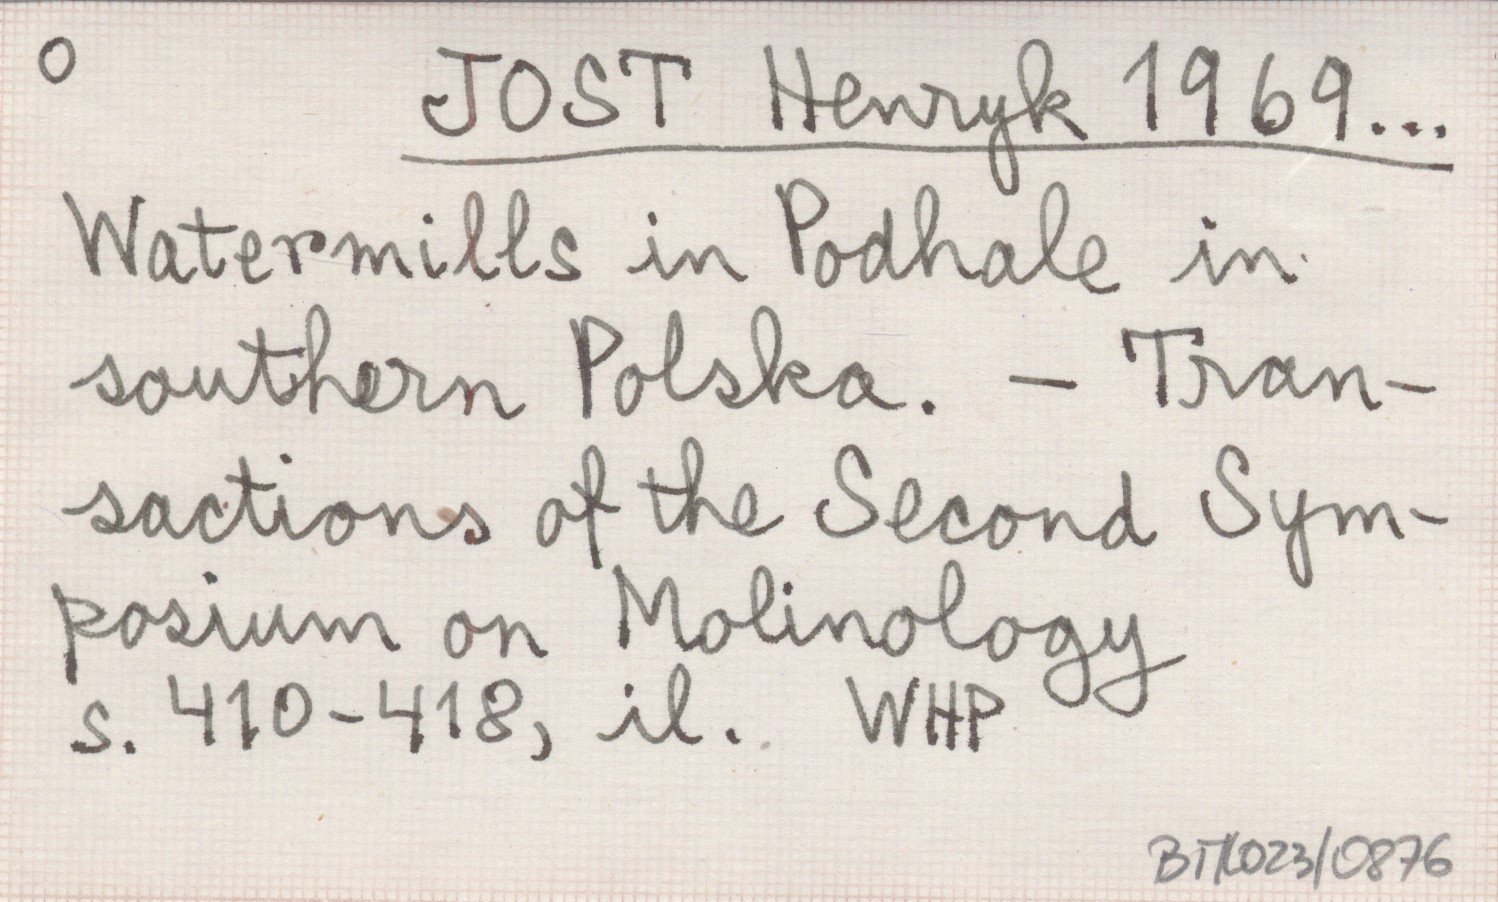 O JOST Henryk 1969...
Watermills in Podhale in
southern Polska. – Tran-
sactions of the Second Sym-
posium on Molinology
s. 410-418, il. WHP